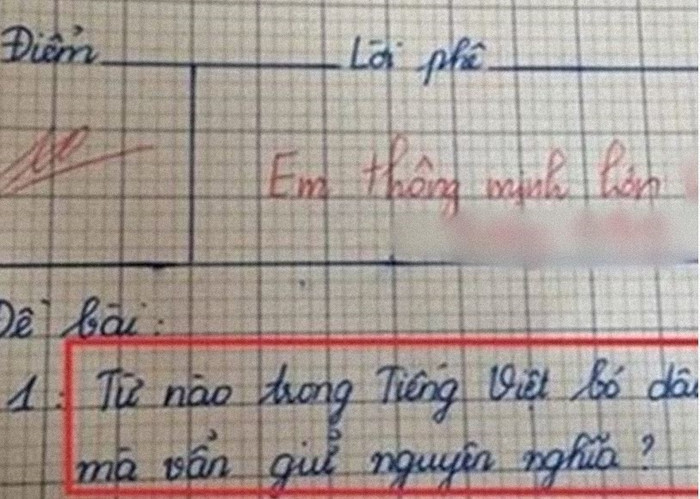 Điểm Lời phê
10
Em thông minh hơn
Đề bài:
1: Từ nào trong Tiếng Việt bỏ
mà vẩn giử nguyên nghĩa?